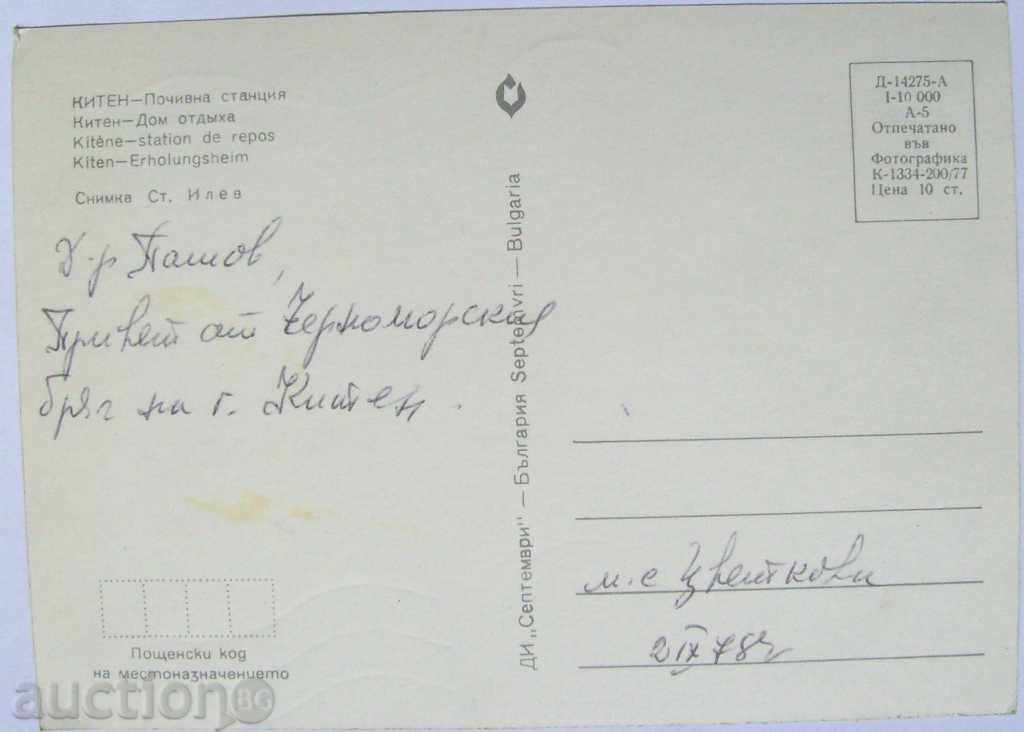 КИТЕН—Почивна станция
Китен—Дом отдыха
Kitène—station de repos
Kiten—Erholungsheim
Снимка Ст. Илев
Д-р Пашов,
Привет от Черноморския
бряг на г. Китен.
Пощенски код
на местоназначението
ДИ „Септември" — България Septemvri — Bulgaria
Д-14275-А
I-10 000
А-5
Отпечатано
във
Фотографика
К-1334-200/77
Цена 10 ст.
м-с Цветкови
2 IX 78г
auction BG